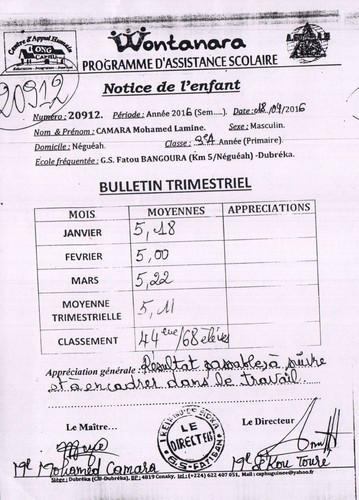 Centre d'Appui Humain
ONG
Wontanara
PROGRAMME D'ASSISTANCE SCOLAIRE
20912
Notice de l'enfant
Numéro : 20912. Période : Année 2016 (Sem....). Date : 18/04/2016
Nom & Prénom : CAMARA Mohamed Lamine. Sexe : Masculin.
Domicile : Néguéah. Classe : Année (Primaire).
École fréquentée : G.S. Fatou BANGOURA (Km 5/Néguéah) -Dubréka.
BULLETIN TRIMESTRIEL
MOIS MOYENNES APPRECIATIONS
JANVIER 5,18
FEVRIER 5,00
MARS 5,22
MOYENNE
TRIMESTRIELLE 5,11
CLASSEMENT 44ème/68 élèves
Appréciation générale : Résultat passable, à suivre
et à encadrer dans le travail.
Le Maître... Le Directeur
LE
DIRECTEUR
Mr Mohamed Camara Mr Sékou Touré
Siège : Dubréka (CBI-Dubréka), BP. 4819 Conakry. Tel : (+224) 622 407 051, Mail : caphuguinee@yahoo.fr